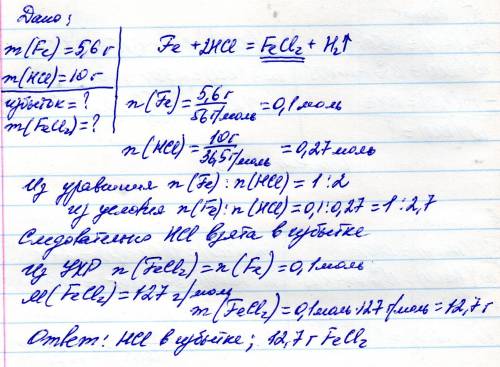 Дано:
m(Fe)=5,6г
m(HCl)=10г
избыток=?
m(FeCl2)=?
Fe + 2HCl = FeCl2 + H2↑
n(Fe)= 5,6г / 56г/моль =0,1моль
n(HCl)= 10г / 36,5г/моль = 0,27моль
Из уравнения n(Fe):n(HCl)=1:2
из условия n(Fe):n(HCl)=0,1:0,27=1:2,7
Следовательно HCl взята в избытке
Из УХР n(FeCl2)=n(Fe)=0,1моль
M(FeCl2)=127 г/моль
m(FeCl2)=0,1моль·127г/моль=12,7г
Ответ: HCl в избытке; 12,7г FeCl2